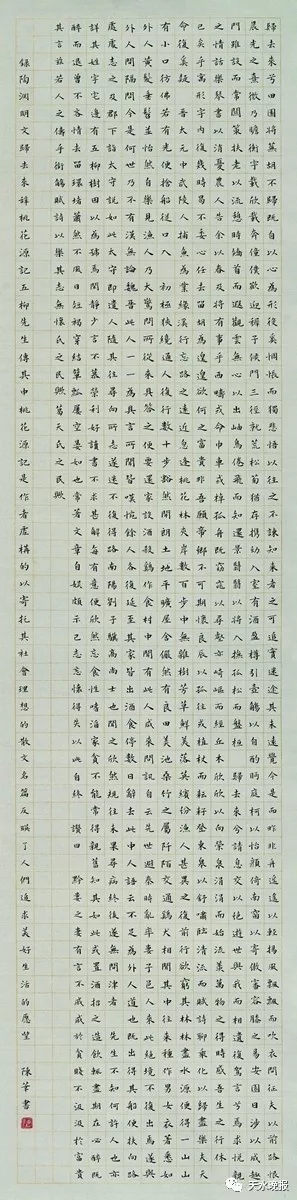 歸去來兮田園將蕪胡不歸既自以心為形役奚惆悵而獨悲悟以往之不諫知來者之可追實迷途其未遠覺今是而昨非舟遙遙以輕颺風飄飄而吹衣問征夫以前路恨
晨光之熹微乃瞻衡宇載欣載奔僮僕歡迎稚子候門三徑就荒松菊猶存攜幼入室有酒盈樽引壺觴以自酌眄庭柯以怡顏倚南窗以寄傲審容膝之易安園日涉以成趣
門雖設而常關策扶老以流憩時矯首而遐觀雲無心以出岫鳥倦飛而知還景翳翳以將入撫孤松而盤桓 歸去來兮請息交以絕遊世與我而相遺復駕言兮焉求悅親戚
之情話樂琴書以消憂農人告余以春及將有事於西疇或命巾車或棹孤舟既窈窕以尋壑亦崎嶇而經丘木欣欣以向榮泉涓涓而始流羨萬物之得時感吾生之行休
已矣乎寓形宇內復幾時曷不委心任去留胡為遑遑欲何之富貴非吾願帝鄉不可期懷良辰以孤往或植杖而耘耔登東皋以舒嘯臨清流而賦詩聊乘化以歸盡樂夫天
命復奚疑 晉太元中武陵人捕魚為業緣溪行忘路之遠近忽逢桃花林夾岸數百步中無雜樹芳草鮮美落英繽紛漁人甚異之復前行欲窮其林林盡水源便得一山山
有小口彷彿若有光便捨船從口入初極狹纔通人復行數十步豁然開朗土地平曠屋舍儼然有良田美池桑竹之屬阡陌交通雞犬相聞其中往來種作男女衣著悉如
外人黃髮垂髫並怡然自樂見漁人乃大驚問所從來具答之便要還家設酒殺雞作食村中聞有此人咸來問訊自云先世避秦時亂率妻子邑人來此絕境不復出焉遂與
外人間隔問今是何世乃不知有漢無論魏晉此人一一為具言所聞皆嘆惋餘人各復延至其家皆出酒食停數日辭去此中人語云不足為外人道也既出得其船便扶向路
處處志之及郡下詣太守說如此太守即遣人隨其往尋向所志遂迷不復得路南陽劉子驥高尚士也聞之欣然規往未果尋病終後遂無問津者 先生不知何許人也亦不
詳其姓字宅邊有五柳樹因以為號焉閑靜少言不慕榮利好讀書不求甚解每有會意便欣然忘食性嗜酒家貧不能常得親舊知其如此或置酒招之造飲輒盡期在必醉既
醉而退曾不吝情去留環堵蕭然不蔽風日短褐穿結簞瓢屢空晏如也常著文章自娛頗示己志忘懷得失以此自終 贊曰 黔婁之妻有言不戚戚於貧賤不汲汲於富貴
其言茲若人之儔乎銜觴賦詩以樂其志無懷氏之民歟葛天氏之民歟
錄陶淵明文歸去來辭桃花源記五柳先生傳其中桃花源記是作者虛構的以寄托其社會理想的散文名篇反映了人們追求美好生活的願望 陳華書
天水晚报